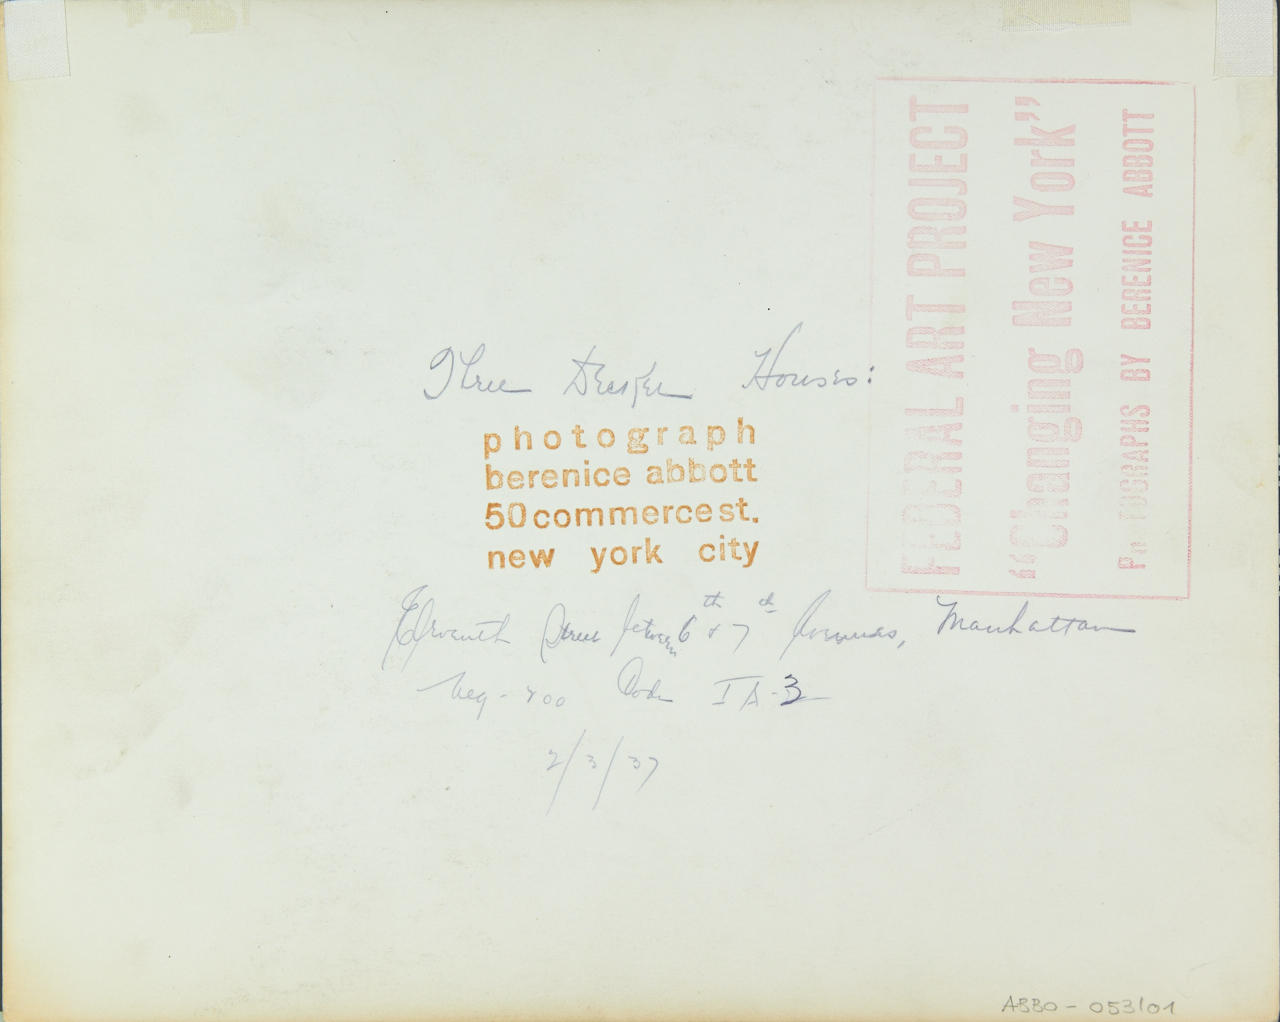 Three Decker Houses:
photograph
berenice abbott
50 commerce st.
new york city
Eleventh Street between 6th & 7th Avenues, Manhattan
Neg - 200 Code I A-3
2/3/37
FEDERAL ART PROJECT
“Changing New York”
PHOTOGRAPHS BY BERENICE ABBOTT
ABBO - 053/01